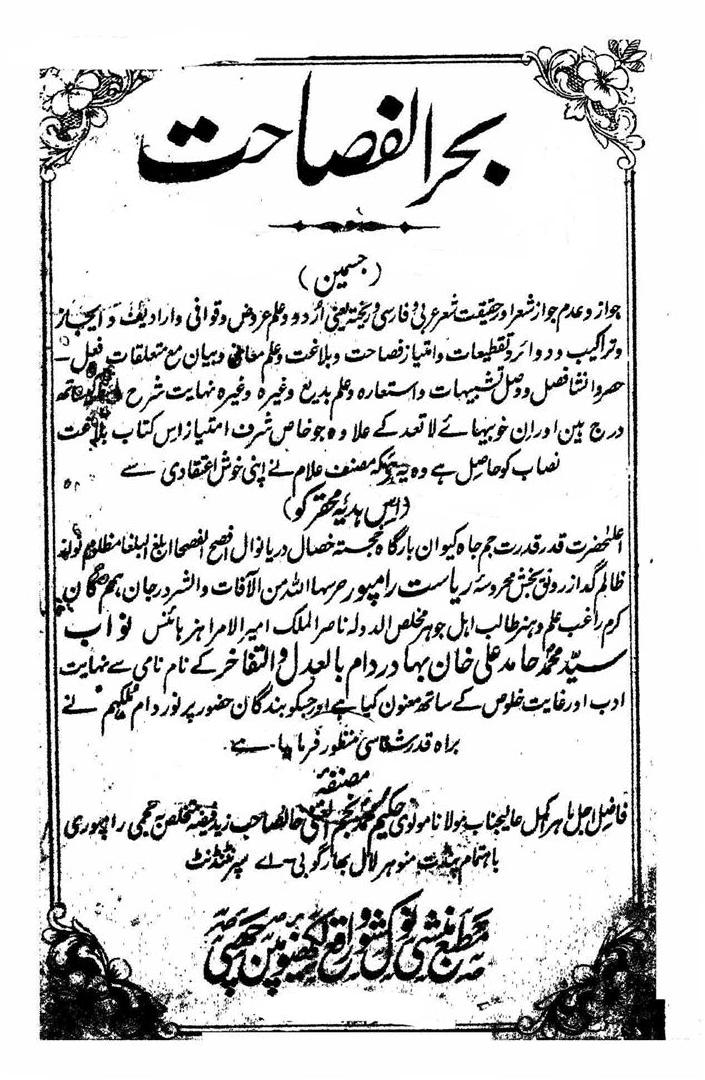 بحر الفصاحت
(جسمین)
جواز و عدم جواز شعر اور حقیقت شعر عربی و فارسی و ریختہ یعنی اُردو و علم عروض و قوافی و ارادیف و ایجاز
و تراکیب و دوائر و تقطیعات و امتیاز فصاحت و بلاغت و علم معانی و بیان مع متعلقات فعل ۔
حصر و انشا فصل و وصل تشبیہات و استعارہ و علم بدیع وغیرہ وغیرہ نہایت شرح
درج ہین اور ان خوبیہائے لا تعد کے علاوہ جو خاص شرف امتیاز اس کتاب بلاغت
نصاب کو حاصل ہے وہ یہ ہے کہ مصنف علام نے اپنی خوش اعتقادی سے
(اس ہدیۂ محقر کو)
اعلیٰحضرت قدر قدرت جم جاہ کیوان بارگاہ خجستہ خصال دریا نوال افصح الفصحا ابلغ البلغا مظلوم نواز
ظالم گداز رونق بخش محروسۂ ریاست رامپور حرسہا اللہ من الآفات والشرور جان
کرم راغب علم و ہنر طالب اہل جوہر مخلص الدولہ ناصر الملک امیر الامرا ہز ہائنس نواب
سید محمد حامد علی خان بہادر دام بالعدل و التفاخر کے نام نامی سے نہایت
ادب اور غایت خلوص کے ساتھ معنون کیا ہے اور جسکو بندگان حضور پر نور دام ملکہم نے
براہ قدر شناسی منظور فرمایا ہے
مصنفۂ
فاضل اجل ماہر اکمل عالیجناب مولانا مولوی حکیم محمد نجم الغنی خانصاحب زید فیضہ متخلص بہ نجمی رامپوری
باہتمام پنڈت منوہر لال بھارگو بی۔اے سپرنٹنڈنٹ
مطبع منشی نولکشور واقع لکھنؤ مین چھپی